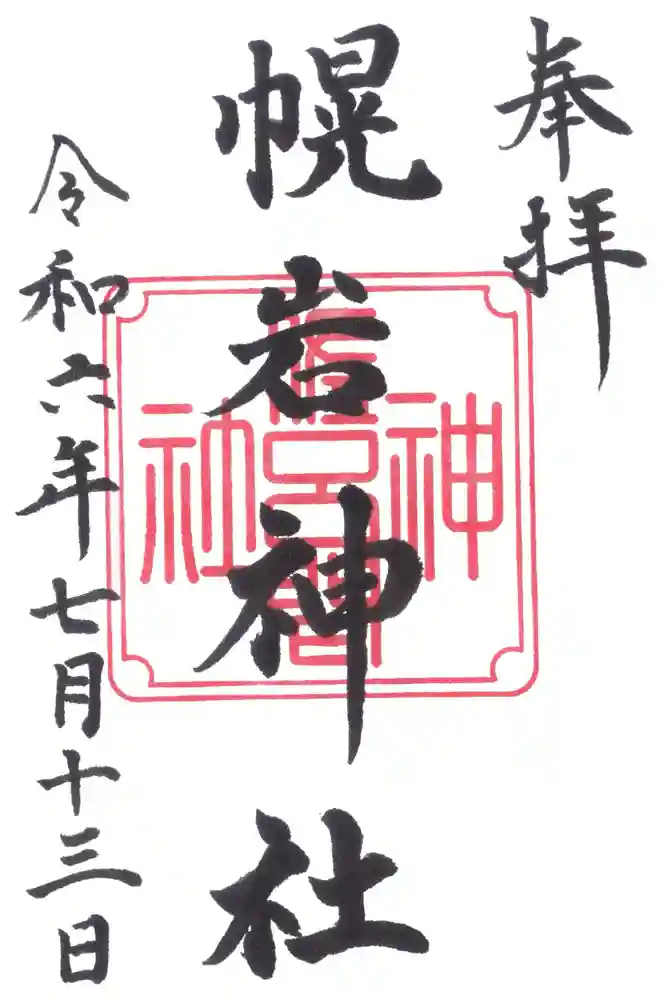 奉拝
幌岩神社
神社
令和六年七月十三日